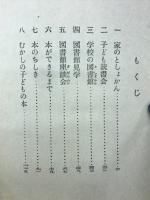 もくじ
一 家のとしょかん
二 子ども読書会
三 学校の図書館
四 図書館見学
五 図書館座談会
六 本ができるまで
七 本のちしき
八 むかしの子どもの本